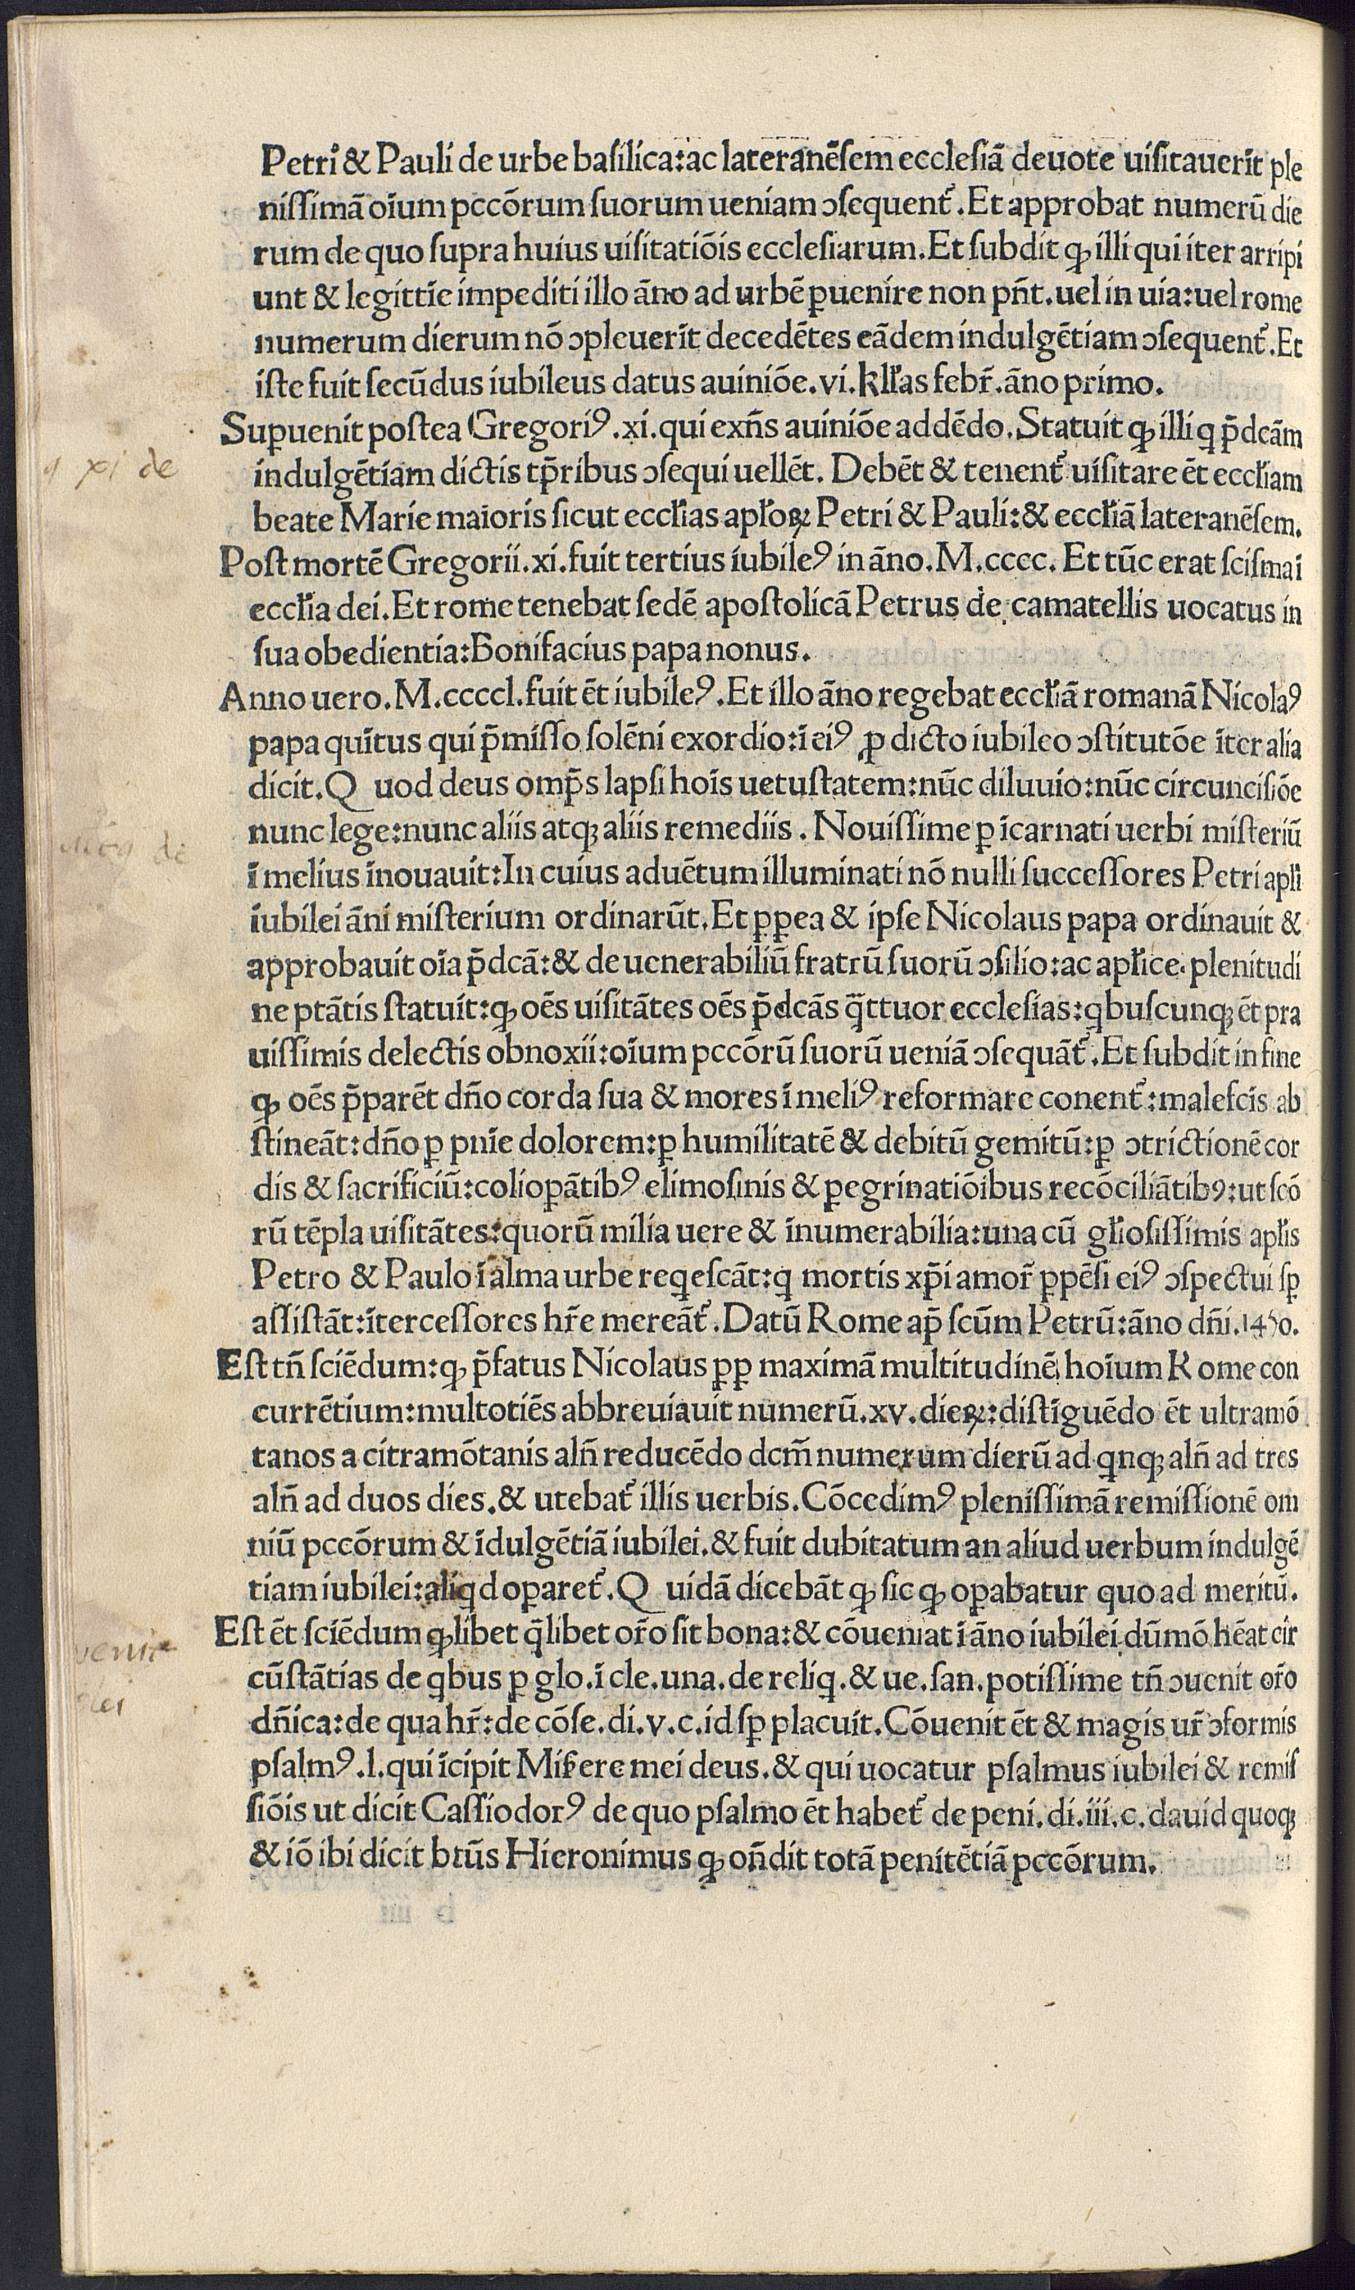 Petri & Pauli de urbe basilica: ac lateranēsem ecclesiā deuote uisitauerīt ple
nissimā oīum pccōrum suorum ueniam ɔsequentᷣ. Et approbat numerū die
rum de quo supra huius uisitatiōis ecclesiarum. Et subdit ꝙ illi qui iter arripi
unt & legittīe impediti illo āno ad urbē ꝑuenire non pn̄t. uel in uia: uel rome
numerum dierum nō ɔpleuerīt decedētes eādem indulgētiam ɔsequentᷣ. Et
iste fuit secūdus iubileus datus auiniōe. vi. kłłas febr̄. āno primo.
Suꝑuenit postea Gregoriꝰ. xi. qui exn̄s auiniōe addēdo. Statuit ꝙ illi q p̄dcām
indulgētiam dictis tp̄ribus ɔsequi uellēt. Debēt & tenentᷣ uisitare ēt eccłiam
beate Marie maioris sicut eccłias apłoꝝ Petri & Pauli: & eccłiā lateranēsem.
Post mortē Gregorii. xi. fuit tertius iubileꝰ in āno. M.cccc. Et tūc erat scisma ī
eccłia dei. Et rome tenebat sedē apostolicā Petrus de camatellis uocatus in
sua obedientia: Bonifacius papa nonus.
Anno uero. M.ccccl. fuit ēt iubileꝰ. Et illo āno regebat eccłiā romanā Nicolaꝰ
papa quītus qui p̄misso solēni exordio: ī eiꝰ ꝓ dicto iubileo ɔstitutōe īter alia
dicit. Quod deus omp̄s lapsi hoīs uetustatem: nūc diluuio: nūc circuncisiōe
nunc lege: nunc aliis atqꝫ aliis remediis. Nouissime ꝑ īcarnati uerbi misteriū
ī melius īnouauit: In cuius aduētum illuminati nō nulli successores Petri apłi
iubilei āni misterium ordinarūt. Et ꝓꝑea & ipse Nicolaus papa ordinauit &
approbauit oīa p̄dcā: & de uenerabiliū fratrū suorū ɔsilio: ac apłice. plenitudi
ne ptātis statuit: ꝙ oēs uisitātes oēs p̄dcās q̄ttuor ecclesias: qbuscunqꝫ ēt pra
uissimis delectis obnoxii: oīum pccōrū suorū ueniā ɔsequātᷣ. Et subdit in fine
ꝙ oēs p̄parēt dn̄o corda sua & mores ī meliꝰ reformare conentᷣ: malefcīs ab
stineāt: dn̄o ꝑ pnīe dolorem: ꝑ humilitatē & debitū gemitū: ꝑ ɔtrictionē cor
dis & sacrificiū: colioꝑātibꝰ elimosinis & ꝑegrinatiōibus recōciliātibꝰ: ut scō
rū tēpla uisitātes: quorū milia uere & īnumerabilia: una cū głiosissimis apłis
Petro & Paulo ī alma urbe reqescāt: q mortis xp̄i amor̄ ꝑpēsi eiꝰ ɔspectui sꝑ
assistāt: ītercessores hr̄e mereātᷣ. Datū Rome ap̄ scūm Petrū: āno dn̄i. 1450.
Est tn̄ sciēdum: ꝙ p̄fatus Nicolaus pp maximā multitudinē hoīum Rome con
currētium: multotiēs abbreuiauit numerū. xv. dieꝝ: distīguēdo ēt ultramō
tanos a citramōtanis aln̄ reducēdo dcm̄ numerum dierū ad qnqꝫ aln̄ ad tres
aln̄ ad duos dies. & utebatᷣ illis uerbis. Cōcedimꝰ plenissimā remissionē om
niū pccōrum & īdulgētiā iubilei. & fuit dubitatum an aliud uerbum indulgē
tiam iubilei: aliqd oparetᷣ. Quidā dicebāt ꝙ sic ꝙ oꝑabatur quo ad meritū.
Est ēt sciēdum ꝙ libet q̄libet or̄o sit bona: & cōueniat ī āno iubilei dūmō hēat cir
cūstātias de qbus ꝑ glo. ī cle. una. de reliq. & ue. san. potissime tn̄ ɔuenit or̄o
dn̄ica: de qua hr̄: de cōse. di. v. c. id sꝑ placuit. Cōuenit ēt & magis ur̄ ɔformis
psalmꝰ. l. qui īcipit Misere mei deus. & qui uocatur psalmus iubilei & remis
siōis ut dicit Cassiodorꝰ de quo psalmo ēt habetᷣ de peni. di. iii. c. dauid quoqꝫ
& iō ibi dicit btūs Hieronimus ꝙ on̄dit totā penitētiā pccōrum.
xi de
de
venit